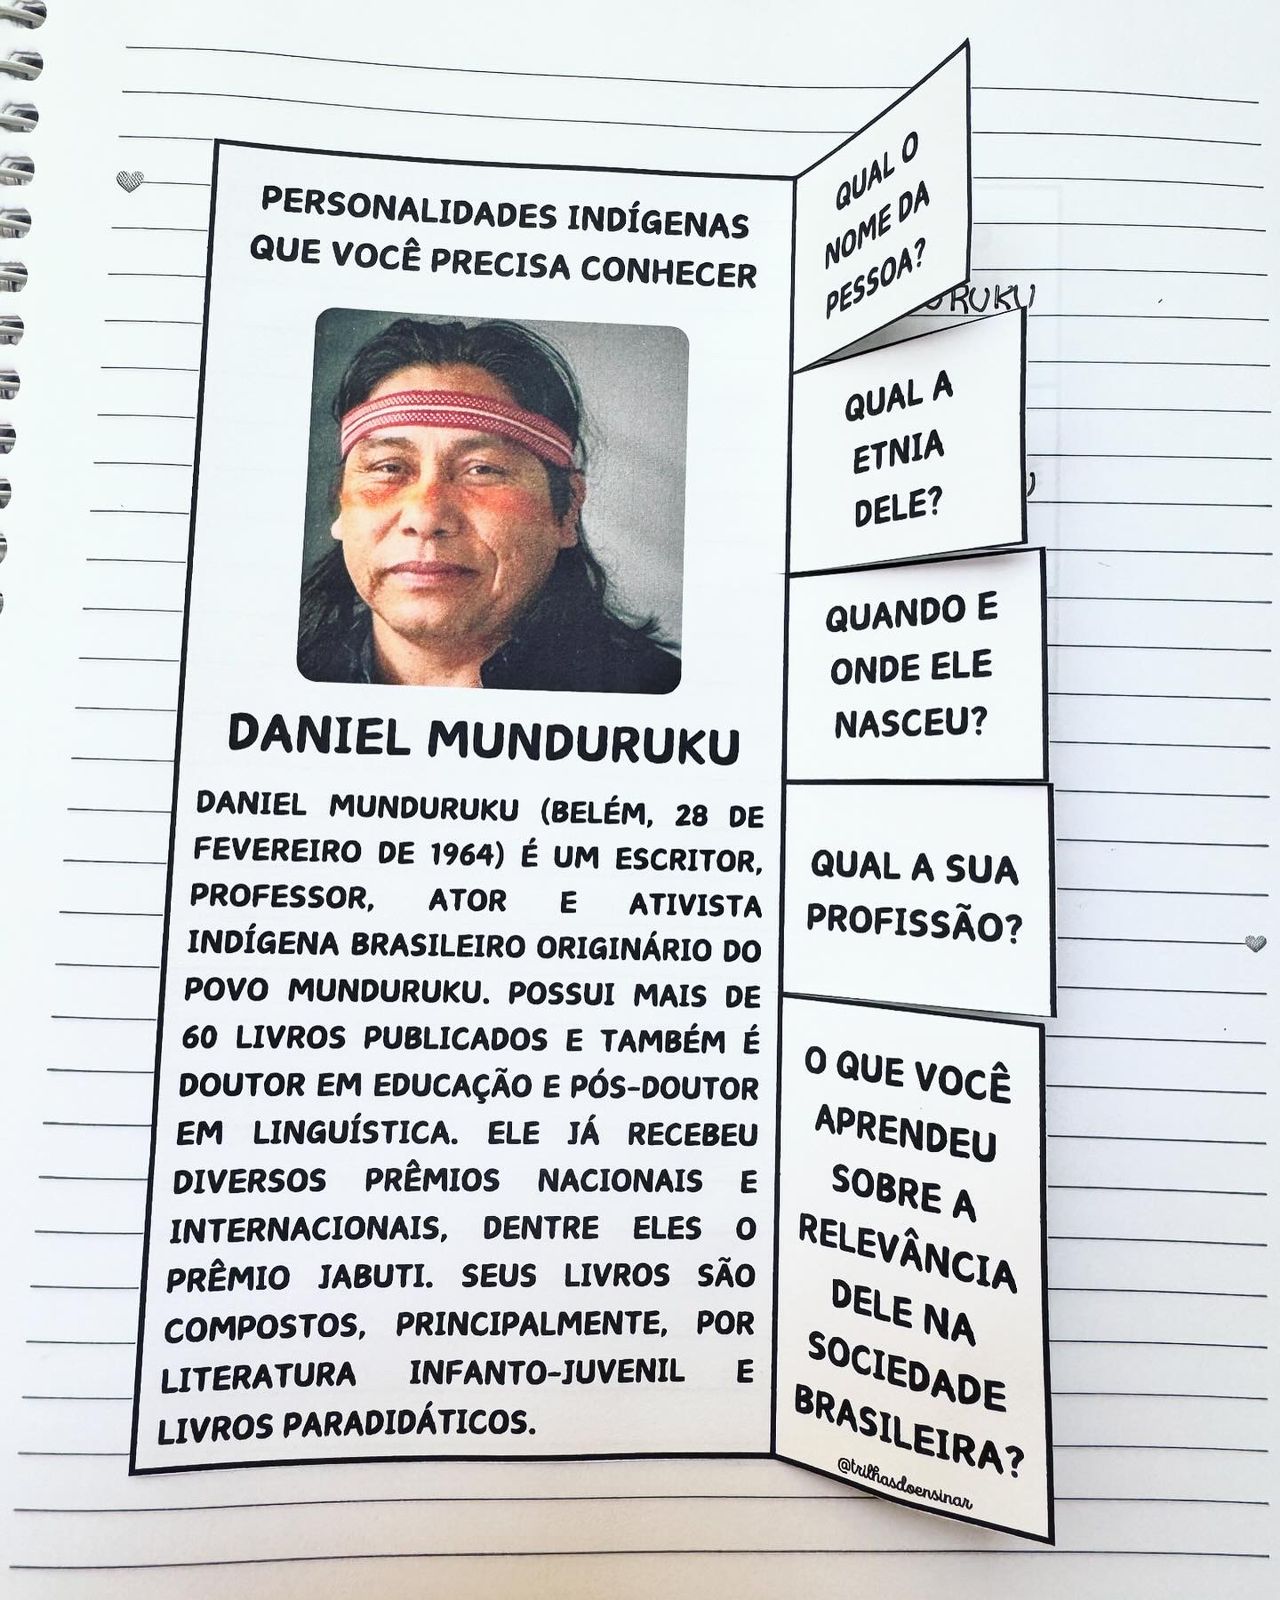 PERSONALIDADES INDÍGENAS
QUE VOCÊ PRECISA CONHECER
DANIEL MUNDURUKU
DANIEL MUNDURUKU (BELÉM, 28 DE
FEVEREIRO DE 1964) É UM ESCRITOR,
PROFESSOR, ATOR E ATIVISTA
INDÍGENA BRASILEIRO ORIGINÁRIO DO
POVO MUNDURUKU. POSSUI MAIS DE
60 LIVROS PUBLICADOS E TAMBÉM É
DOUTOR EM EDUCAÇÃO E PÓS-DOUTOR
EM LINGUÍSTICA. ELE JÁ RECEBEU
DIVERSOS PRÊMIOS NACIONAIS E
INTERNACIONAIS, DENTRE ELES O
PRÊMIO JABUTI. SEUS LIVROS SÃO
COMPOSTOS, PRINCIPALMENTE, POR
LITERATURA INFANTO-JUVENIL E
LIVROS PARADIDÁTICOS.
QUAL O
NOME DA
PESSOA?
QUAL A
ETNIA
DELE?
QUANDO E
ONDE ELE
NASCEU?
QUAL A SUA
PROFISSÃO?
O QUE VOCÊ
APRENDEU
SOBRE A
RELEVÂNCIA
DELE NA
SOCIEDADE
BRASILEIRA?
@trilhasdoensinar